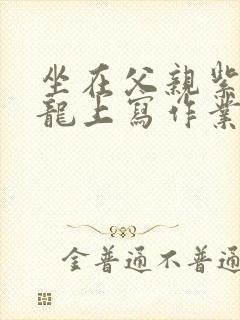 坐在父親紫
龍上寫作業
金普通不普通